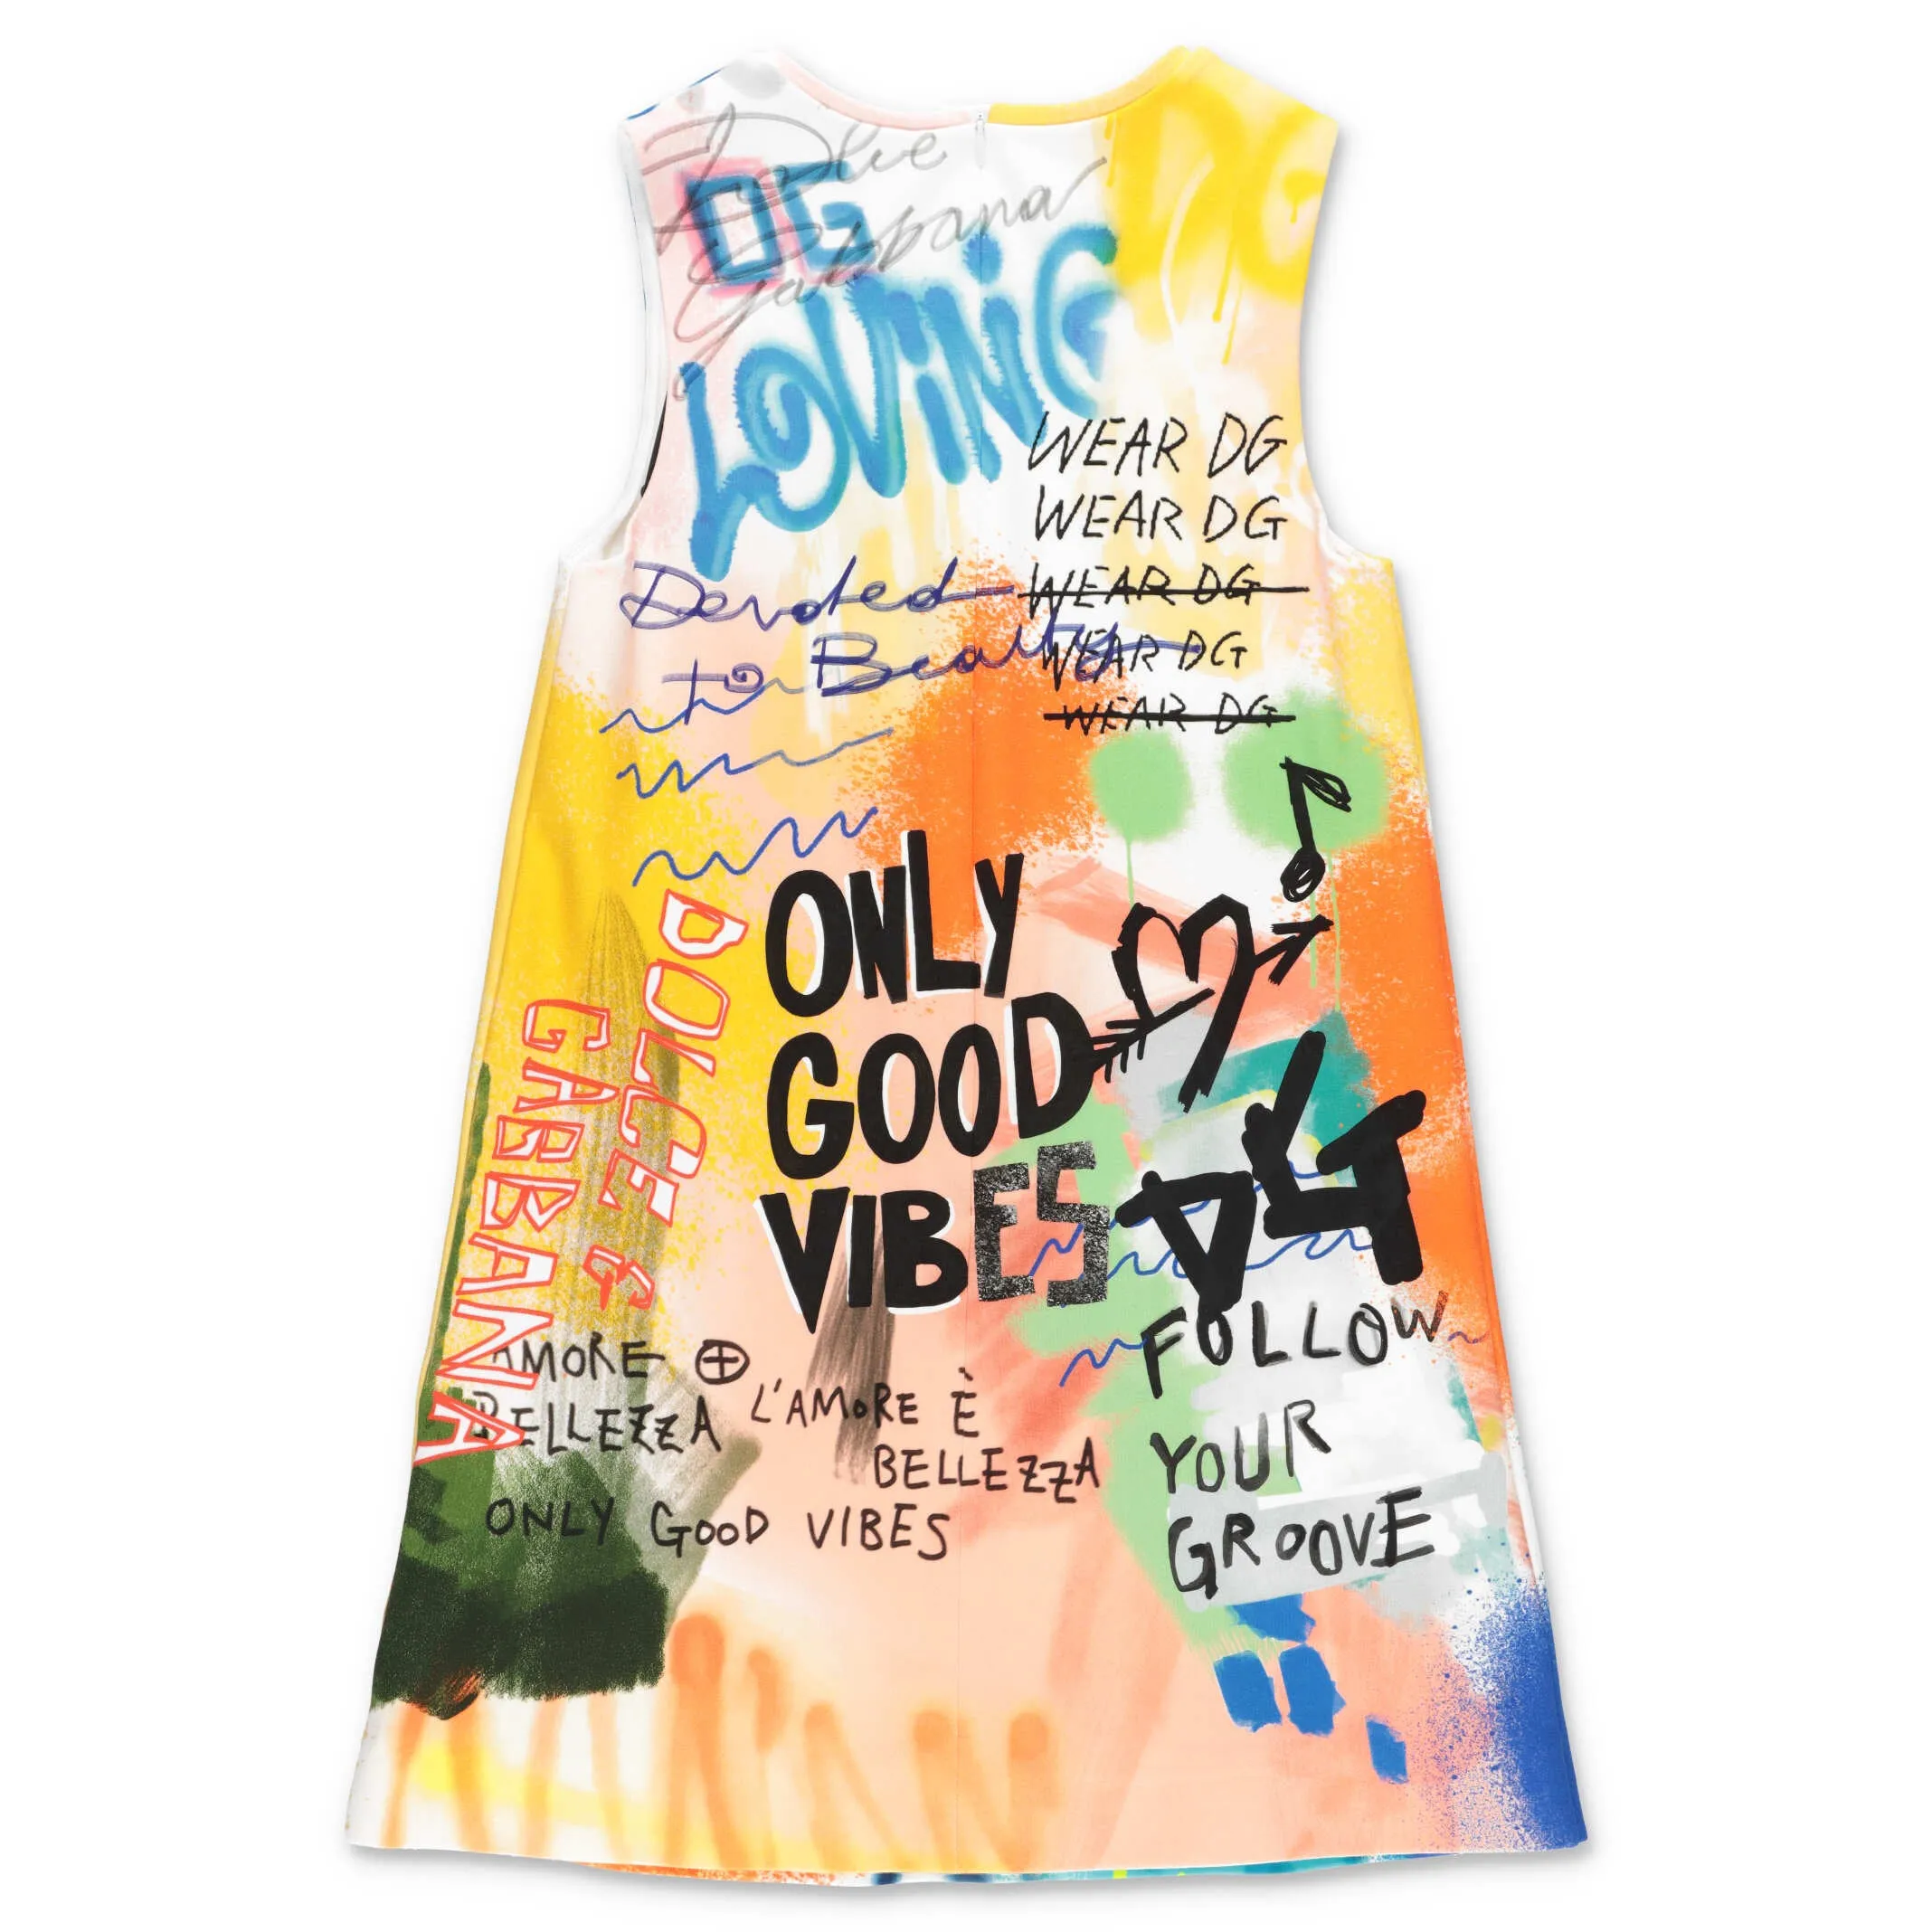 Dolce
Gabbana
DG
DG
LOVING
WEAR DG
WEAR DG
WEAR DG
WEAR DG
WEAR DG
Devoted
to Beauty
ONLY
GOOD
VIBES
DOLCE &
GABBANA
DG
AMORE ⊕
BELLEZZA
L'AMORE È
BELLEZZA
ONLY GOOD VIBES
FOLLOW
YOUR
GROOVE